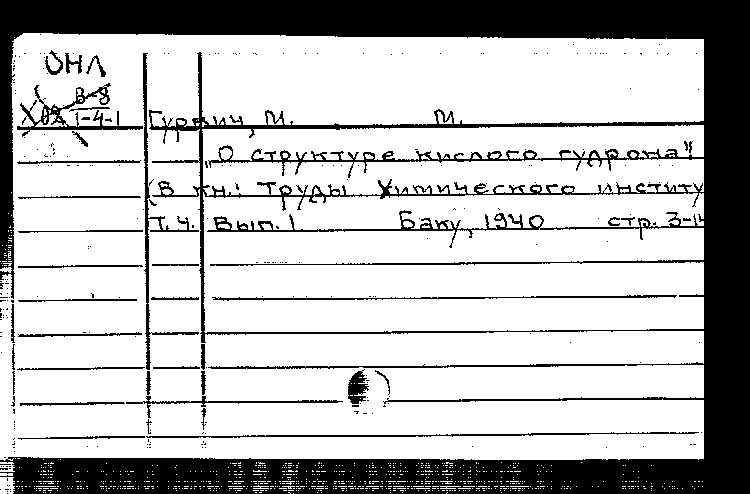 ОНЛ
В-8
1-4-1
Гуревич, М. М.
„О структуре кислого гудрона"
(В кн.: Труды Химического институ
Т. 4. Вып. 1 Баку, 1940 стр. 3-